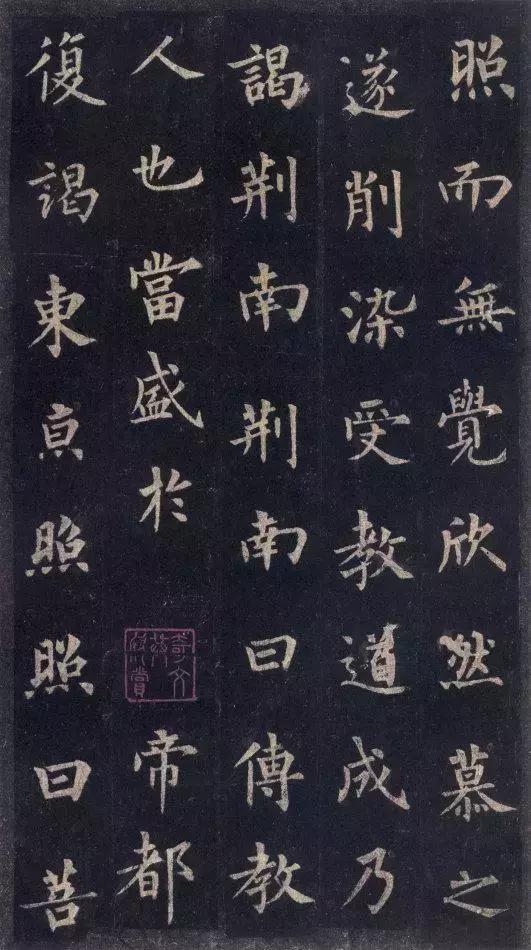 照而無覺欣然慕之
遂削染受教道成乃
謁荆南荆南曰傳教
人也當盛於 帝都
復謁東亰照照曰菩